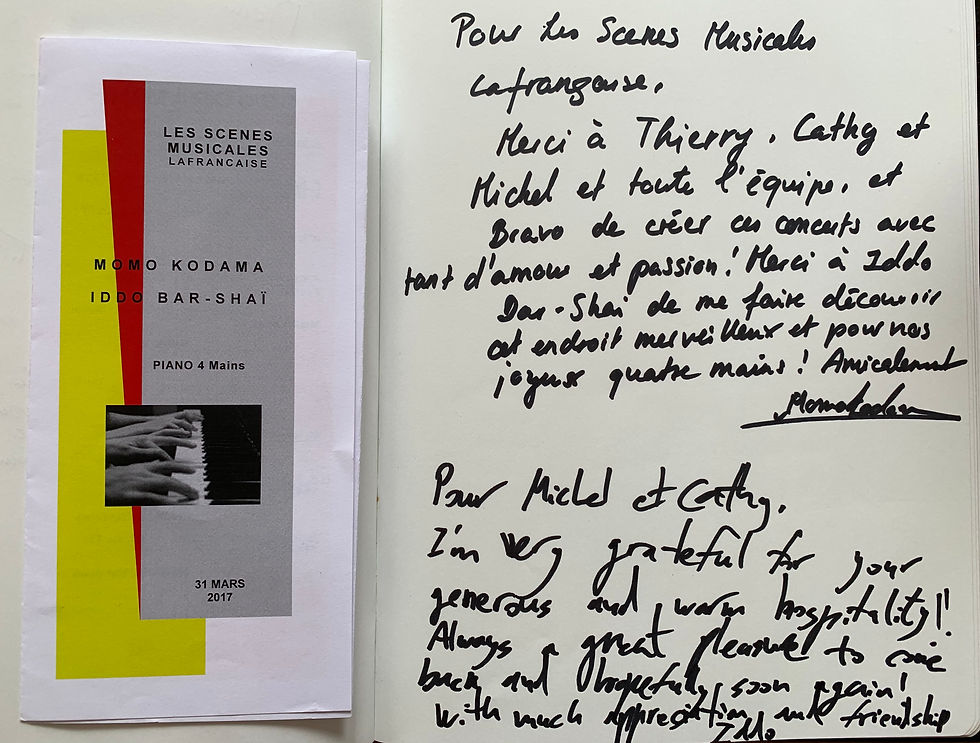 LES SCENES
MUSICALES
LAFRANCAISE
MOMO KODAMA
IDDO BAR-SHAÏ
PIANO 4 Mains
31 MARS
2017
Pour Les Scenes Musicales
Lafrançaise,
Merci à Thierry, Cathy et
Michel et toute l'équipe, et
Bravo de créer ces concerts avec
tant d'amour et passion! Merci à Iddo
Bar-Shaï de me faire découvrir
cet endroit merveilleux et pour nos
joyeux quatre mains! Amicalement
Momo Kodama
Pour Michel et Cathy,
I'm very grateful for your
generous and warm hospitality!
Always a great pleasure to come
back and hopefully soon again!
With much appreciation and friendship
Iddo